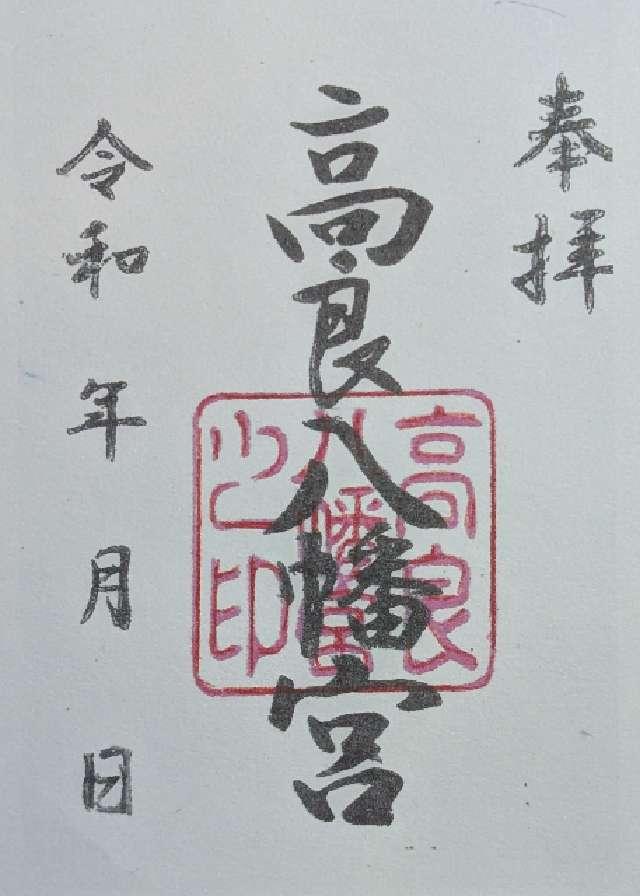 奉拝
高良八幡宮
令和 年 月 日
高良
八幡宮
之印